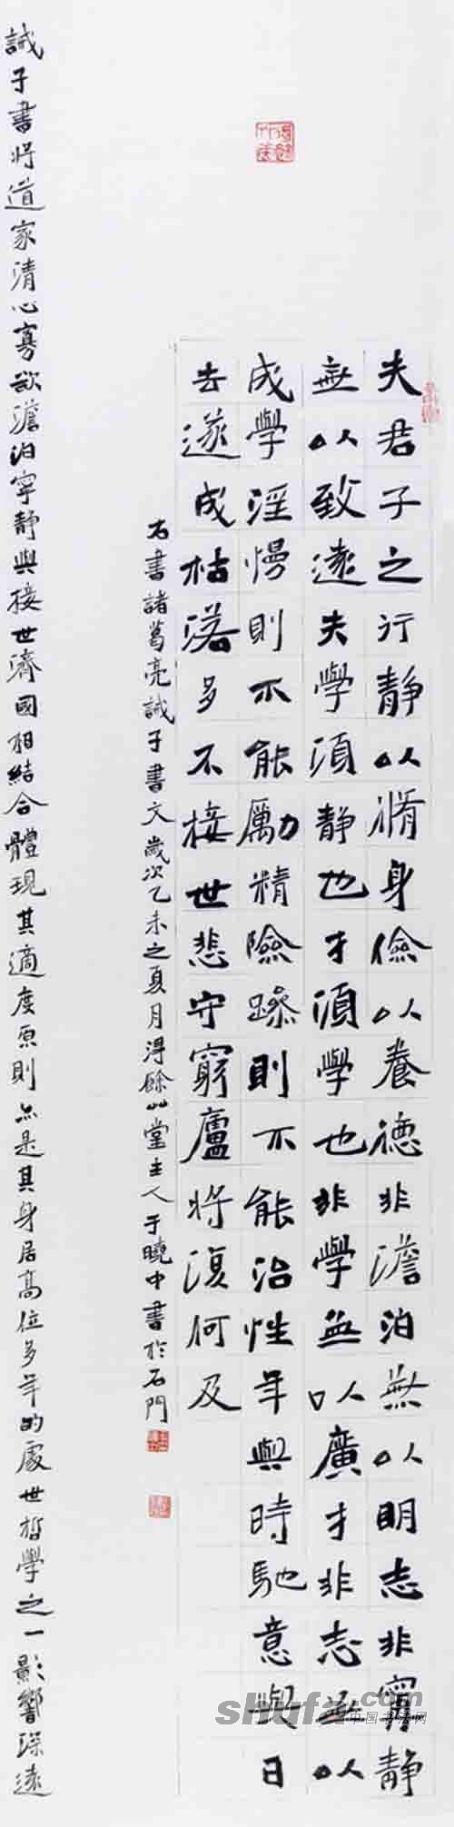 夫君子之行静以脩身儉以養德非澹泊無以明志非寧静
無以致遠夫學須静也才須學也非學無以廣才非志無以
成學淫慢則不能勵精險躁則不能治性年與時馳意與日
去遂成枯落多不接世悲守窮廬將復何及
右書諸葛亮誡子書文歲次乙未之夏月得餘山堂主人于曉中書於石門
誡子書將道家清心寡欲澹泊寧静與接世濟國相結合體現其適度原則亦是其身居高位多年的處世哲學之一影響深遠
shufa.com
中国书法网